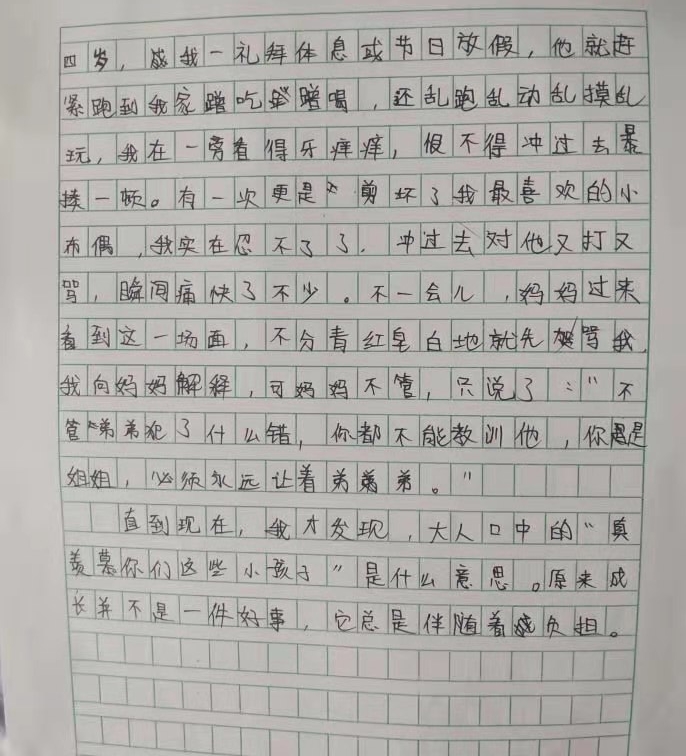 四岁，感我一礼拜体息或节日放假，他就赶
紧跑到我家蹭吃蹭喝，还乱跑乱动乱摸乱
玩，我在一旁看得牙痒痒，恨不得冲过去暴
揍一顿。有一次更是剪坏了我最喜欢的小
布偶，我实在忍不了了．冲过去对他又打又
骂，瞬间痛快了不少。不一会儿，妈妈过来
看到这一场面，不分青红皂白地就先骂我，
我向妈妈解释，可妈妈不管，只说了：“不
管弟弟犯了什么错，你都不能教训他，你是
姐姐，必须永远让着弟弟。”
直到现在，我才发现，大人口中的“真
羡慕你们这些小孩子”是什么意思。原来成
长并不是一件好事，它总是伴随着负担。